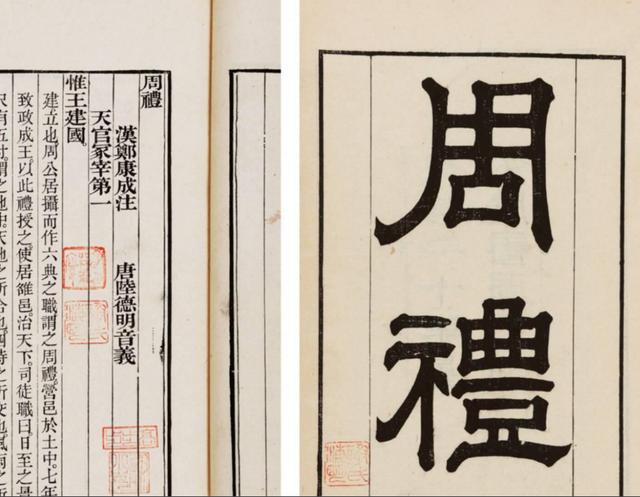 周禮
周禮
漢鄭康成注 唐陸德明音義
天官冢宰第一
惟王建國。
建立也。周公居攝而作六典之職。謂之周禮。營邑於土中。七年
致政成王。以此禮授之。使居雒邑。治天下。司徒職曰。日至之景
尺有五寸。謂之地中。天地之所合也。四時之所交也。風雨之所